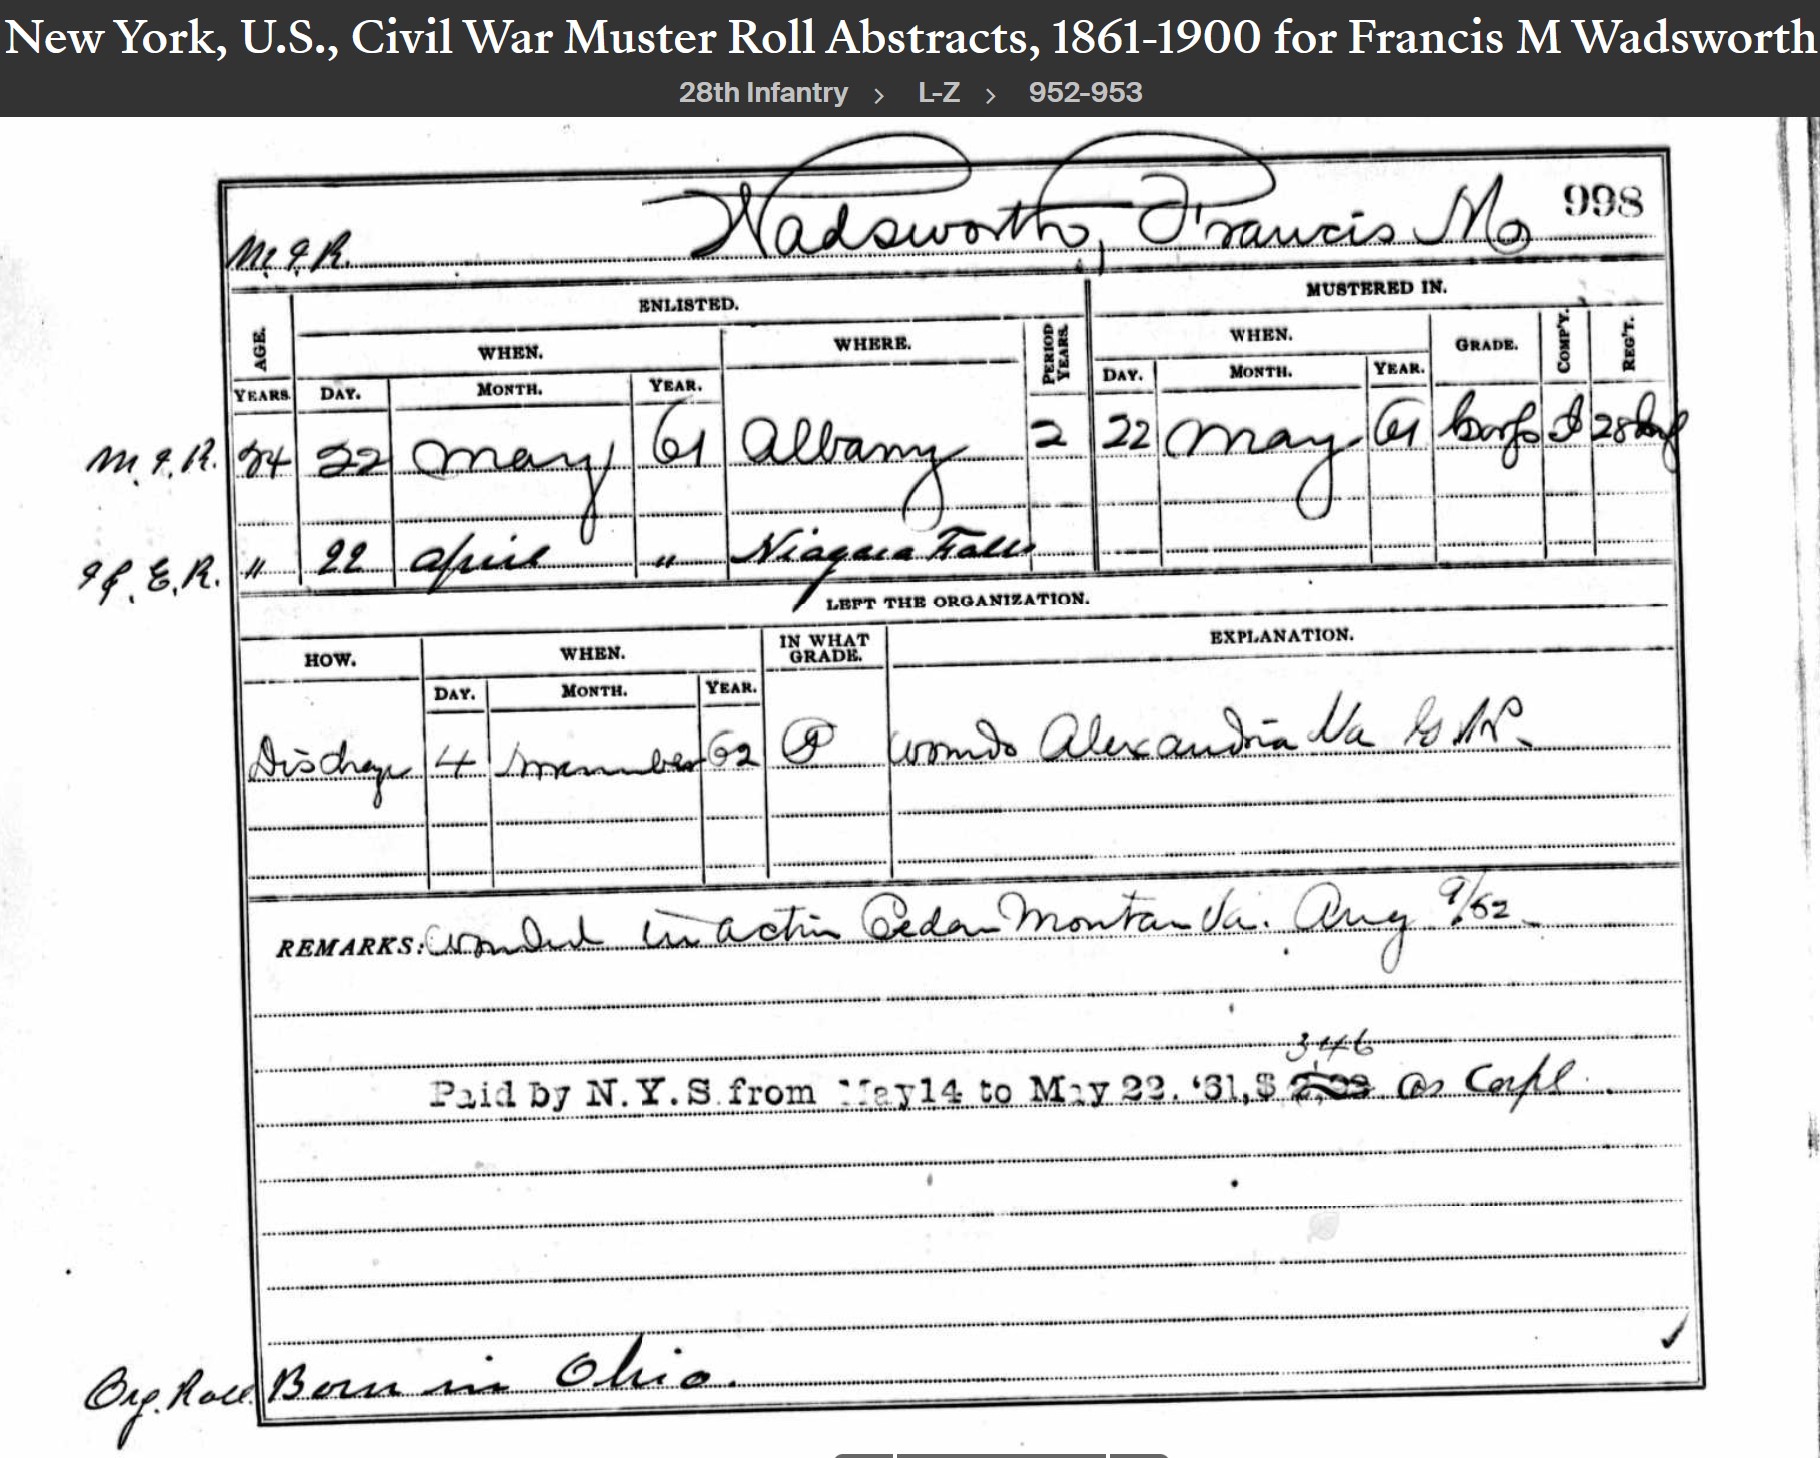 New York, U.S., Civil War Muster Roll Abstracts, 1861-1900 for Francis M Wadsworth
28th Infantry > L-Z > 952-953
998
M. I. R. Wadsworth, Francis M
ENLISTED. MUSTERED IN.
AGE. WHEN. WHERE. PERIOD YEARS. WHEN. GRADE. COMP'Y. REG'T.
YEARS. DAY. MONTH. YEAR. DAY. MONTH. YEAR.
M. I. R. 24 22 May 61 Albany 2 22 May 61 Corp 28 Inf
" 22 April " Niagara Falls
LEFT THE ORGANIZATION.
HOW. WHEN. IN WHAT GRADE. EXPLANATION.
DAY. MONTH. YEAR.
Discharge 4 62 P wounds Alexandria Va
REMARKS: Wounded in action Cedar Mountan Va. Aug 9/62
346
Paid by N.Y.S. from May 14 to May 22. '61, $ as Corpl.
Org. Roll. Born in Ohio.